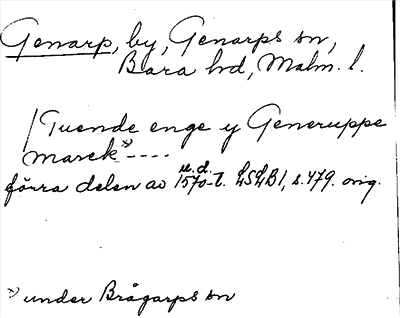 Genarp, by, Genarps sn,
Bara hd, Malm. l.
/Tuende enge y Generuppe
marck*) ----
u.d.
förra delen av 1570-t. LSLB1, s. 479. orig.
*) under Brågarps sn